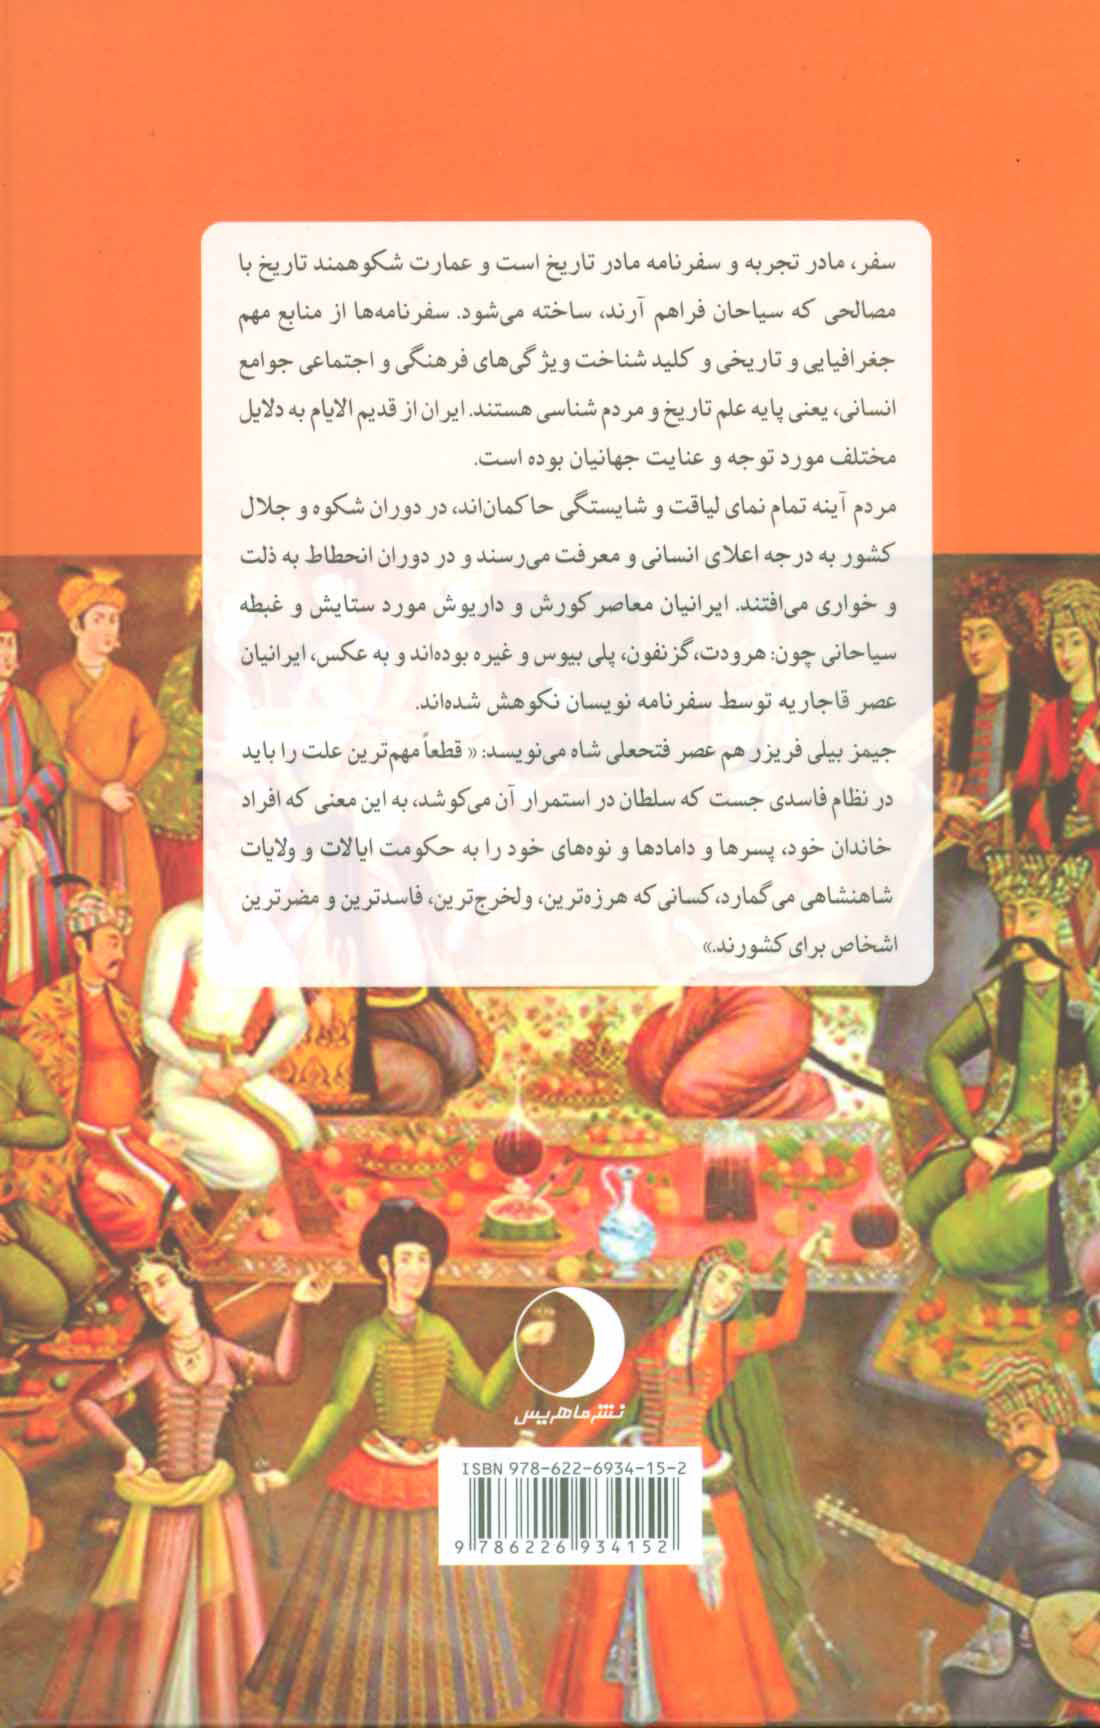 سفر، مادر تجربه و سفرنامه مادر تاریخ است و عمارت شکوهمند تاریخ با
مصالحی که سیاحان فراهم آرند، ساخته می‌شود. سفرنامه‌ها از منابع مهم
جغرافیایی و تاریخی و کلید شناخت ویژگی‌های فرهنگی و اجتماعی جوامع
انسانی، یعنی پایه علم تاریخ و مردم شناسی هستند. ایران از قدیم الایام به دلایل
مختلف مورد توجه و عنایت جهانیان بوده است.
مردم آینه تمام نمای لیاقت و شایستگی حاکمان‌اند، در دوران شکوه و جلال
کشور به درجه اعلای انسانی و معرفت می‌رسند و در دوران انحطاط به ذلت
و خواری می‌افتند. ایرانیان معاصر کورش و داریوش مورد ستایش و غبطه
سیاحانی چون: هرودت، گزنفون، پلی بیوس و غیره بوده‌اند و به عکس، ایرانیان
عصر قاجاریه توسط سفرنامه نویسان نکوهش شده‌اند.
جیمز بیلی فریزر هم عصر فتحعلی شاه می‌نویسد: « قطعاً مهم‌ترین علت را باید
در نظام فاسدی جست که سلطان در استمرار آن می‌کوشد، به این معنی که افراد
خاندان خود، پسرها و دامادها و نوه‌های خود را به حکومت ایالات و ولایات
شاهنشاهی می‌گمارد، کسانی که هرزه‌ترین، ولخرج‌ترین، فاسدترین و مضرترین
اشخاص برای کشورند.»
نشر ماهریس
ISBN 978-622-6934-15-2
9 786226 934152